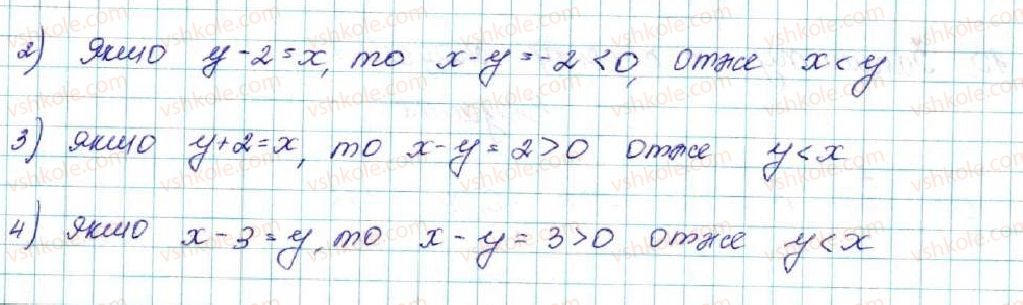 2) якшо y - 2 = x, то x - y = -2 < 0, отже x < y
3) якшо y + 2 = x, то x - y = 2 > 0 отже y < x
4) якшо x - 3 = y, то x - y = 3 > 0 отже y < x